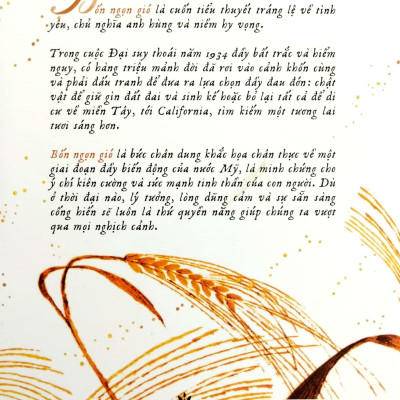 Bốn ngọn gió là cuốn tiểu thuyết tráng lệ về tình
yêu, chủ nghĩa anh hùng và niềm hy vọng.
Trong cuộc Đại suy thoái năm 1934 đầy bất trắc và hiểm
nguy, có hàng triệu mảnh đời đã rơi vào cảnh khốn cùng
và phải đấu tranh để đưa ra lựa chọn đầy đau đớn: chật
vật để giữ gìn đất đai và sinh kế hoặc bỏ lại tất cả để di
cư về miền Tây, tới California, tìm kiếm một tương lai
tươi sáng hơn.
Bốn ngọn gió là bức chân dung khắc họa chân thực về một
giai đoạn đầy biến động của nước Mỹ, là minh chứng cho
ý chí kiên cường và sức mạnh tinh thần của con người. Dù
ở thời đại nào, lý tưởng, lòng dũng cảm và sự sẵn sàng
cống hiến sẽ luôn là thứ quyền năng giúp chúng ta vượt
qua mọi nghịch cảnh.